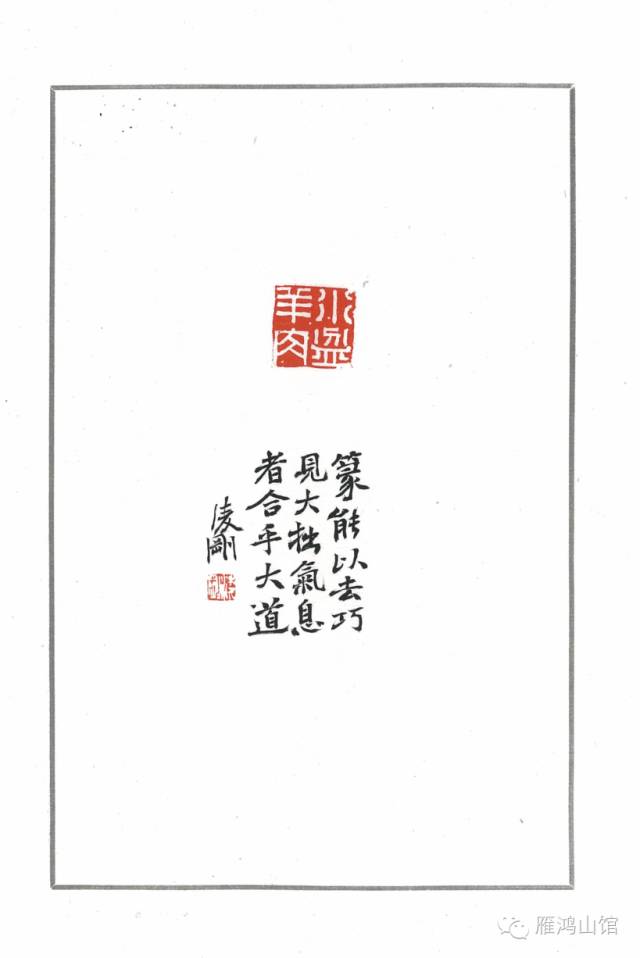 水盆
羊肉
篆能以去巧
見大拙氣息
者合乎大道
凌剛
雁鸿山馆